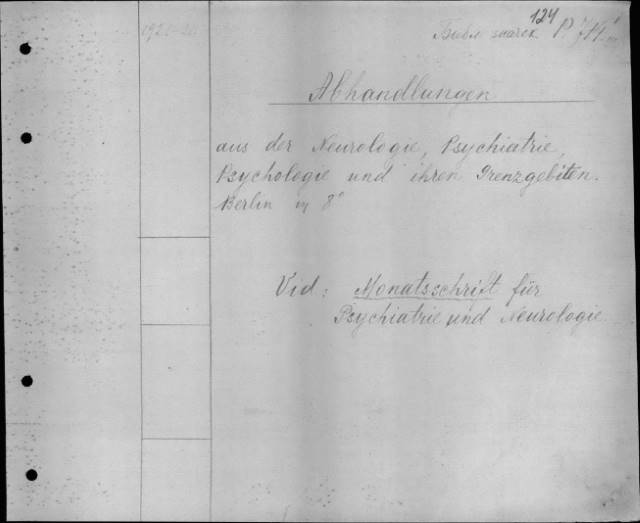 124
Abhandlungen
aus der Neurologie, Psychiatrie,
Psychologie und ihren Grenzgebiten.
Berlin in 8°
Vid: Monatsschrift für
Psychiatrie und Neurologie